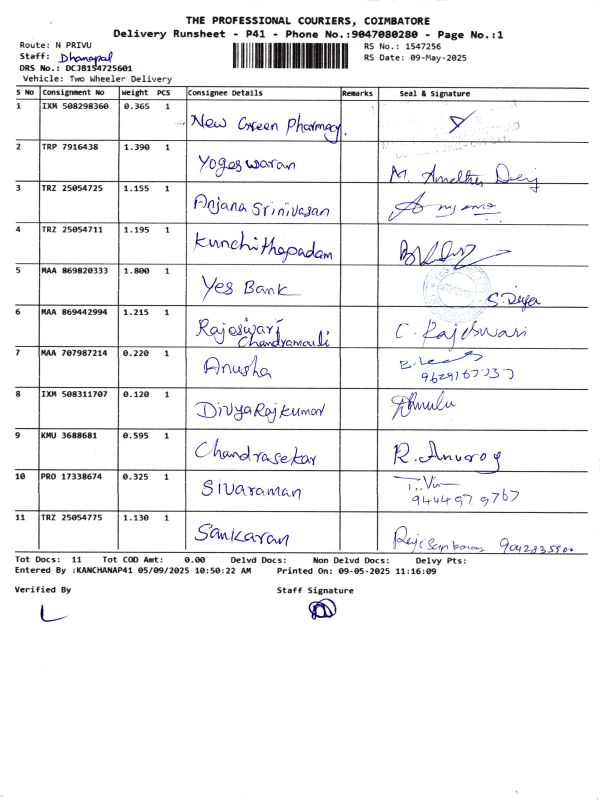 THE PROFESSIONAL COURIERS, COIMBATORE
Delivery Runsheet - P41 - Phone No.:9047080280 - Page No.:1
Route: N PRIVU RS No.: 1547256
Staff: Dhanapal RS Date: 09-May-2025
DRS No.: DCJB154725601
Vehicle: Two Wheeler Delivery
S No Consignment No Weight PCS Consignee Details Remarks Seal & Signature
1 IXM 508298360 0.365 1 New Green Pharmacy.
2 TRP 7916438 1.390 1 Yogeswaran
3 TRZ 25054725 1.155 1 Anjana Srinivasan
4 TRZ 25054711 1.195 1 Kunchithapadam
5 MAA 869820333 1.800 1 Yes Bank
6 MAA 869442994 1.215 1 Rajeswari C. Rajeswari
Chandramouli
7 MAA 707987214 0.220 1 Anusha
8 IXM 508311707 0.120 1 DivyaRajkumar
9 KMU 3688681 0.595 1 Chandrasekar
10 PRO 17338674 0.325 1 Sivaraman
11 TRZ 25054775 1.130 1 Sankaran
Tot Docs: 11 Tot COD Amt: 0.00 Delvd Docs: Non Delvd Docs: Delvy Pts:
Entered By :KANCHANAP41 05/09/2025 10:50:22 AM Printed On: 09-05-2025 11:16:09
Verified By Staff Signature